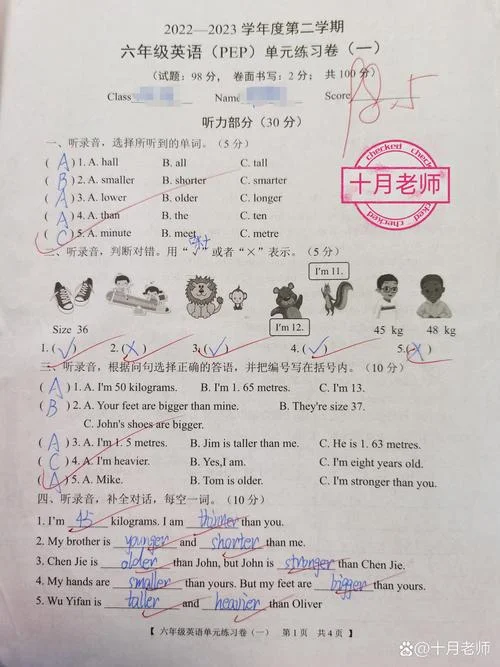 2022—2023 学年度第二学期
六年级英语（PEP）单元练习卷（一）
（试题：98分，卷面书写：2分；共100分）
Class Name Score 98.5
听力部分（30分）
一、听录音，选择所听到的单词。（5分）
( A ) 1. A. hall B. all C. tall
( B ) 2. A. smaller B. shorter C. smarter
( A ) 3. A. lower B. older C. longer
( A ) 4. A. than B. the C. ten
( C ) 5. A. minute B. meet C. metre
checked checked
十月老师
二、听录音，判断对错。用“√”或者“×”表示。（5分）
I'm 11.
I'm 12.
Size 36 45 kg 48 kg
1. (√) 2. (×) 3. (√) 4. (√) 5. (×)
三、听录音，根据问句选择正确的答语，并把编号写在括号内。（10分）
( A ) 1. A. I'm 50 kilograms. B. I'm 1. 65 metres. C. I'm 13.
( B ) 2. A. Your feet are bigger than mine. B. They're size 37.
C. John's shoes are bigger.
( A ) 3. A. I'm 1. 5 metres. B. Jim is taller than me. C. He is 1. 63 metres.
( C ) 4. A. I'm heavier. B. Yes,I am. C. I'm eight years old.
( A ) 5. A. Mike. B. Tom is older. C. I'm stronger than you.
四、听录音，补全对话，每空一词。（10分）
1. I'm 45 kilograms. I am thinner than you.
2. My brother is younger and shorter than me.
3. Chen Jie is older than John, but John is stronger than Chen Jie.
4. My hands are smaller than yours. But my feet are bigger than yours.
5. Wu Yifan is taller and heavier than Oliver
【 六年级英语单元练习卷（一） 第1页 共4页 】
@十月老师